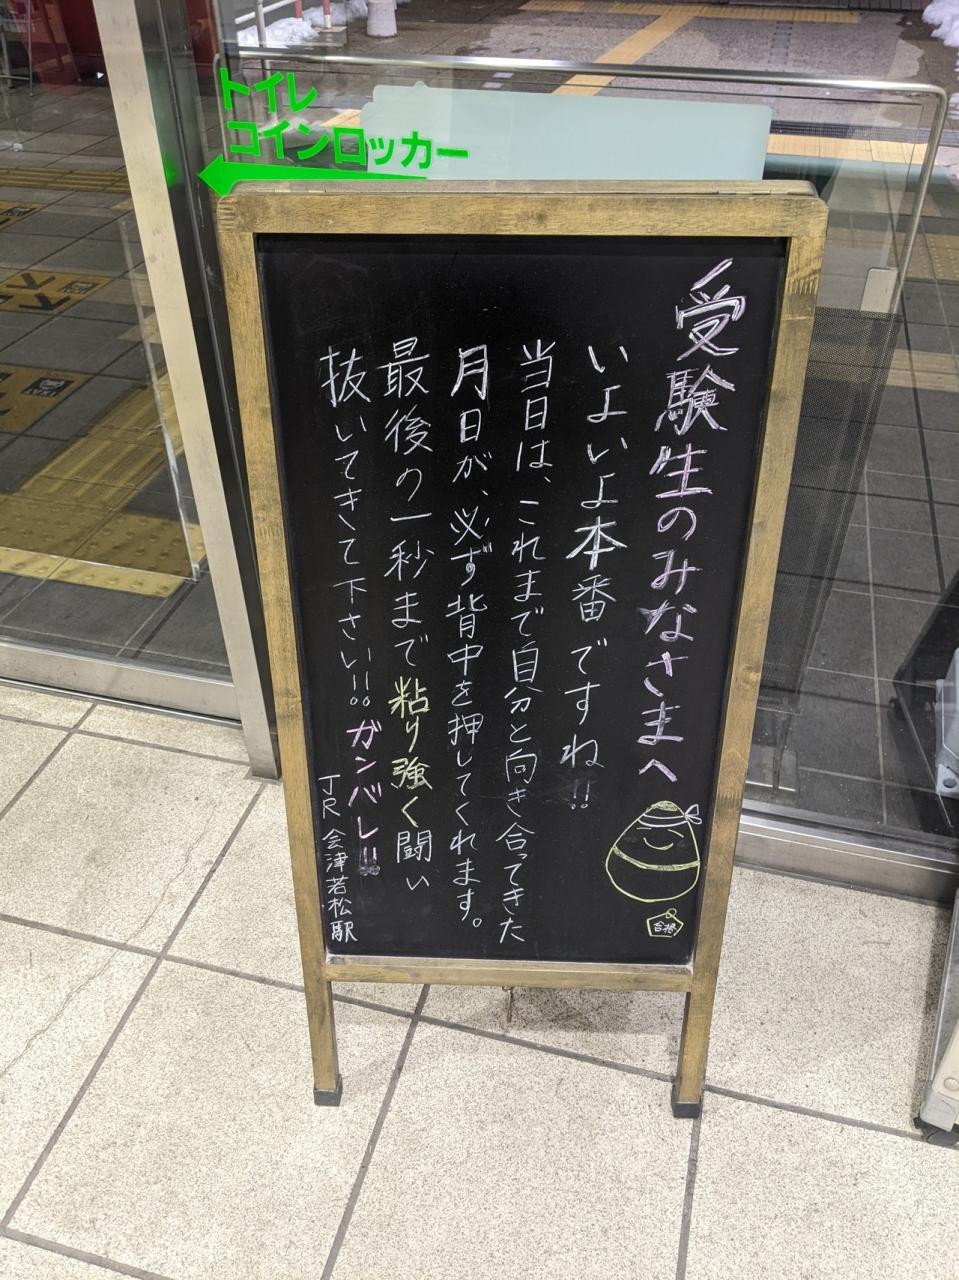 トイレ
コインロッカー
受験生のみなさまへ
いよいよ本番ですね!!
当日は、これまで自分と向き合ってきた
月日が、必ず背中を押してくれます。
最後の一秒まで粘り強く闘い
抜いてきて下さい!!
ガンバレ!!
JR会津若松駅
合格